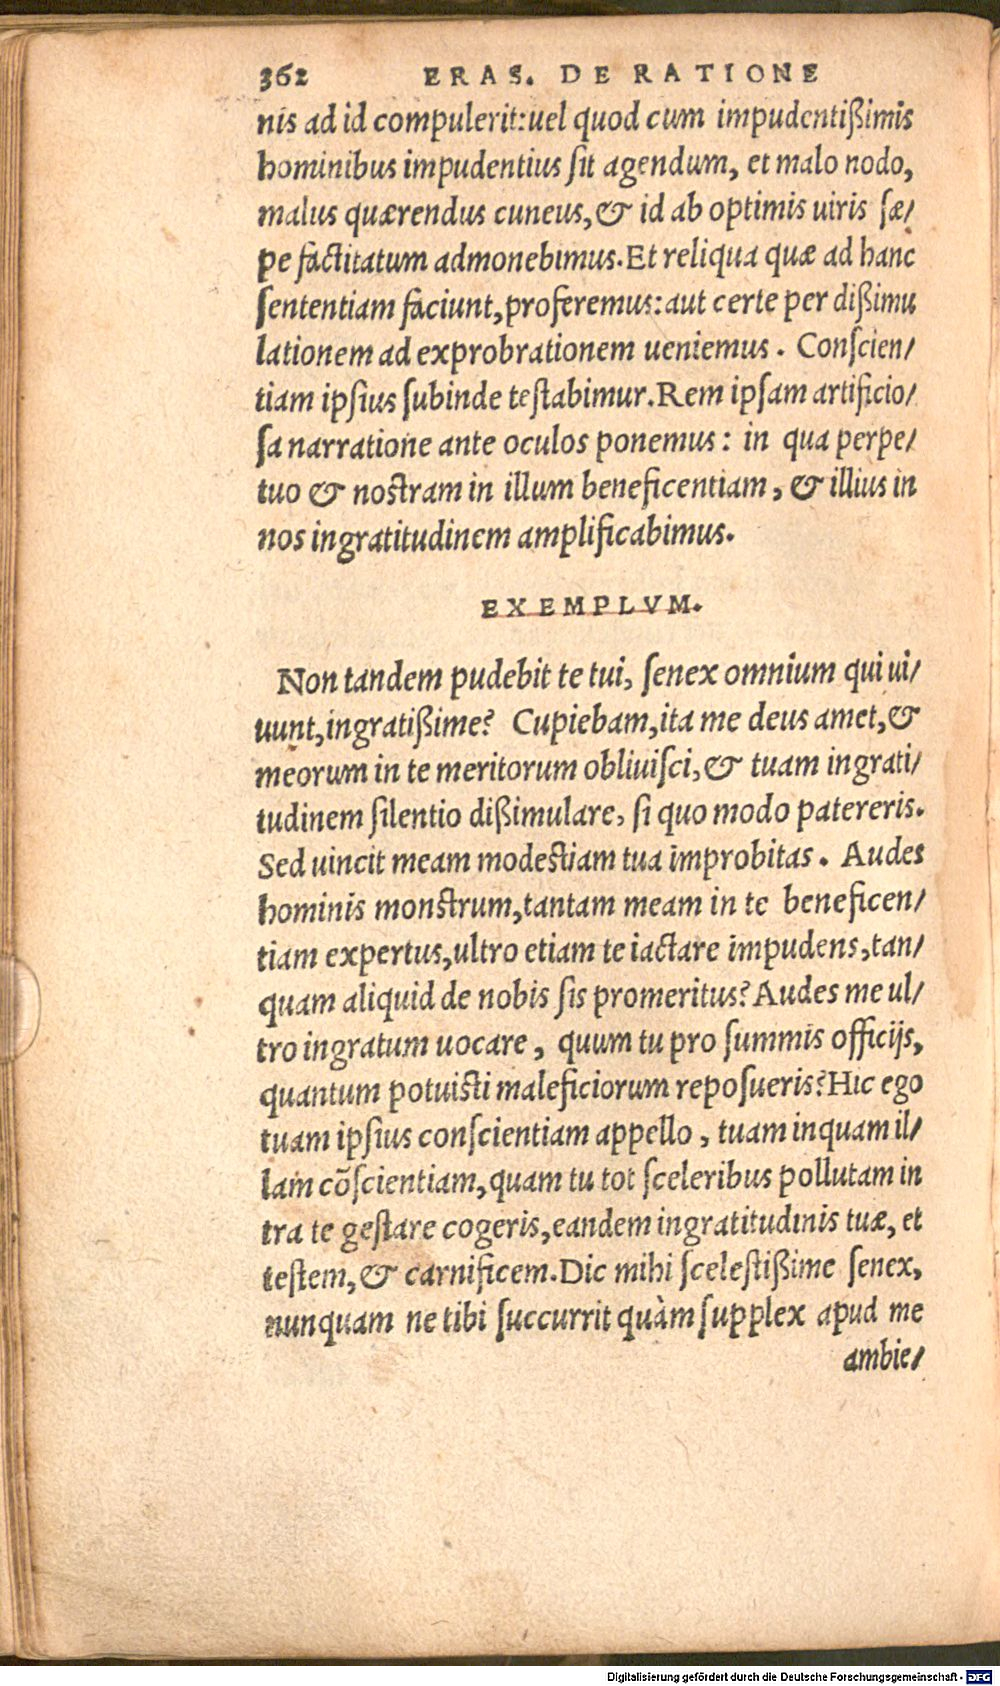 362 ERAS. DE RATIONE
nis ad id compulerit:uel quod cum impudentißimis
hominibus impudentius ſit agendum, et malo nodo,
malus quærendus cuneus,& id ab optimis uiris ſæ/
pe factitatum admonebimus.Et reliqua quæ ad hanc
ſententiam faciunt,proferemus:aut certe per dißimu
lationem ad exprobrationem ueniemus. Conſcien/
tiam ipſius ſubinde teſtabimur.Rem ipſam artificio/
ſa narratione ante oculos ponemus: in qua perpe/
tuo & noſtram in illum beneficentiam, & illius in
nos ingratitudinem amplificabimus.
EXEMPLVM.
Non tandem pudebit te tui, ſenex omnium qui ui/
uunt,ingratißime? Cupiebam,ita me deus amet,&
meorum in te meritorum obliuiſci,& tuam ingrati/
tudinem ſilentio dißimulare, ſi quo modo patereris.
Sed uincit meam modeſtiam tua improbitas. Audes
hominis monſtrum,tantam meam in te beneficen/
tiam expertus,ultro etiam te iactare impudens,tan/
quam aliquid de nobis ſis promeritus? Audes me ul/
tro ingratum uocare, quum tu pro ſummis officijs,
quantum potuiſti maleficiorum repoſueris?Hic ego
tuam ipſius conſcientiam appello, tuam inquam il/
lam cōſcientiam,quam tu tot ſceleribus pollutam in
tra te geſtare cogeris,eandem ingratitudinis tuæ, et
teſtem,& carnificem.Dic mihi ſceleſtißime ſenex,
nunquam ne tibi ſuccurrit quàm ſupplex apud me
ambie/
Digitalisierung gefördert durch die Deutsche Forschungsgemeinschaft - DFG